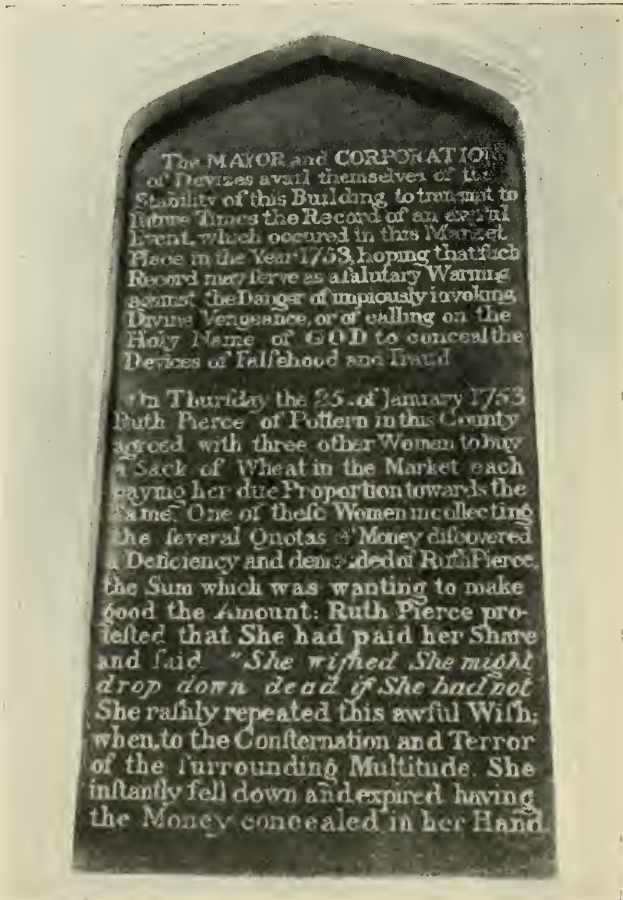 The MAYOR and CORPORATION
of Devizes avail themselves of the
Stability of this Building, to transmit to
future Times the Record of an awful
Event, which occured in this Market
Place in the Year 1753, hoping that ſuch
Record may ſerve as a ſalutary Warning
against the Danger of impiously invoking
Divine Vengeance, or of calling on the
Holy Name of GOD to conceal the
Devices of Falſehood and Fraud
On Thurſday the 25. of January 1753
Ruth Pierce of Pottern in this County
agreed with three other Women to buy
a Sack of Wheat in the Market each
paying her due Proportion towards the
same. One of theſe Women in collecting
the ſeveral Quotas of Money diſcovered
a Deficiency and demanded of Ruth Pierce,
the Sum which was wanting to make
good the Amount: Ruth Pierce pro-
teſted that She had paid her Share
and ſaid "She wiſhed She might
drop down dead if She had not
She raſhly repeated this awful Wiſh;
when, to the Conſternation and Terror
of the ſurrounding Multitude, She
inſtantly fell down and expired having
the Money concealed in her Hand.